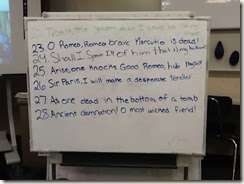 23 O Romeo, Romeo brave Mercutio is dead!
24 Shall I speak ill of him that is my husband
25 Arise, one knocks Good Romeo, hide thyself
26 Sir Paris, I will make a desperate tender
27 As one dead in the bottom of a tomb
28 Ancient damnation! O most wicked fiend!